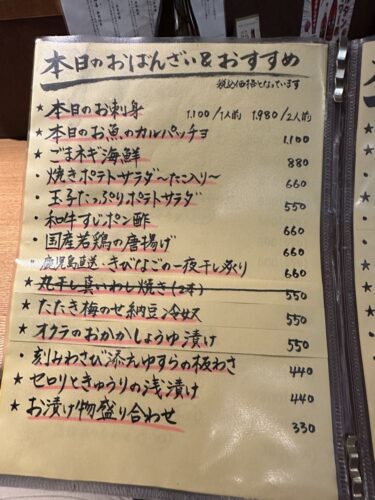 本日のおばんざい&おすすめ
税込価格となっています
★ 本日のお刺身 1.100/1人前 1.980/2人前
★ 本日のお魚のカルパッチョ 1.100
★ ごまネギ海鮮 880
・焼きポテトサラダ〜たこ入り〜 660
・玉子たっぷりポテトサラダ 550
・和牛すじポン酢 660
・国産若鶏の唐揚げ 660
・鹿児島直送・きびなごの一夜干し炙り 660
★ 丸干し真いわし焼き(2本) 550
★ たたき梅のせ納豆冷奴 550
★ オクラのおかかしょうゆ漬け 550
・刻みわさび添えゆすらの板わさ 440
★ セロリときゅうりの浅漬け 440
★ お漬け物盛り合わせ 330